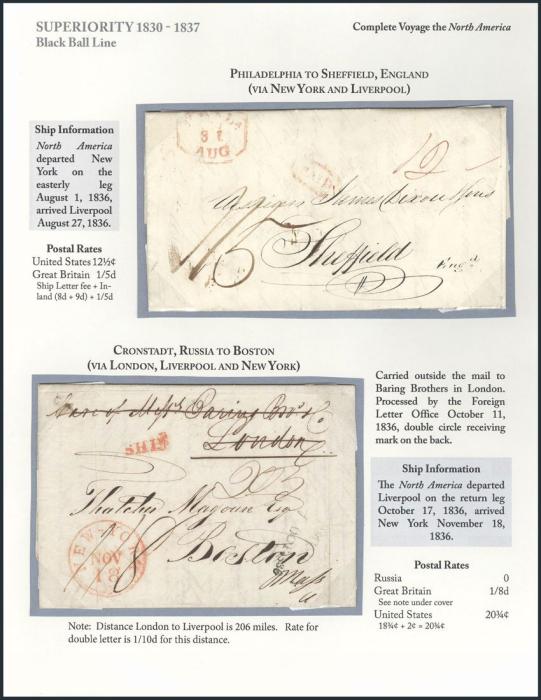 SUPERIORITY 1830 - 1837
Black Ball Line
Complete Voyage the North America
PHILADELPHIA TO SHEFFIELD, ENGLAND
(VIA NEW YORK AND LIVERPOOL)
Ship Information
North America
departed New
York on the
easterly leg
August 1, 1836,
arrived Liverpool
August 27, 1836.
Postal Rates
United States 12½¢
Great Britain 1/5d
Ship Letter fee + In-
land (8d + 9d) + 1/5d
31
AUG
12
James Dixon & Sons
Sheffield
Eng.d
CRONSTADT, RUSSIA TO BOSTON
(VIA LONDON, LIVERPOOL AND NEW YORK)
Care of Messrs Baring Bros & Co
London
SHIP
Thatcher Magoun Esq
NEW-YORK
NOV
18
Boston
Mass
Carried outside the mail to
Baring Brothers in London.
Processed by the Foreign
Letter Office October 11,
1836, double circle receiving
mark on the back.
Ship Information
The North America departed
Liverpool on the return leg
October 17, 1836, arrived
New York November 18,
1836.
Postal Rates
Russia 0
Great Britain 1/8d
See note under cover
United States 20¾¢
18¾¢ + 2¢ = 20¾¢
Note: Distance London to Liverpool is 206 miles. Rate for
double letter is 1/10d for this distance.